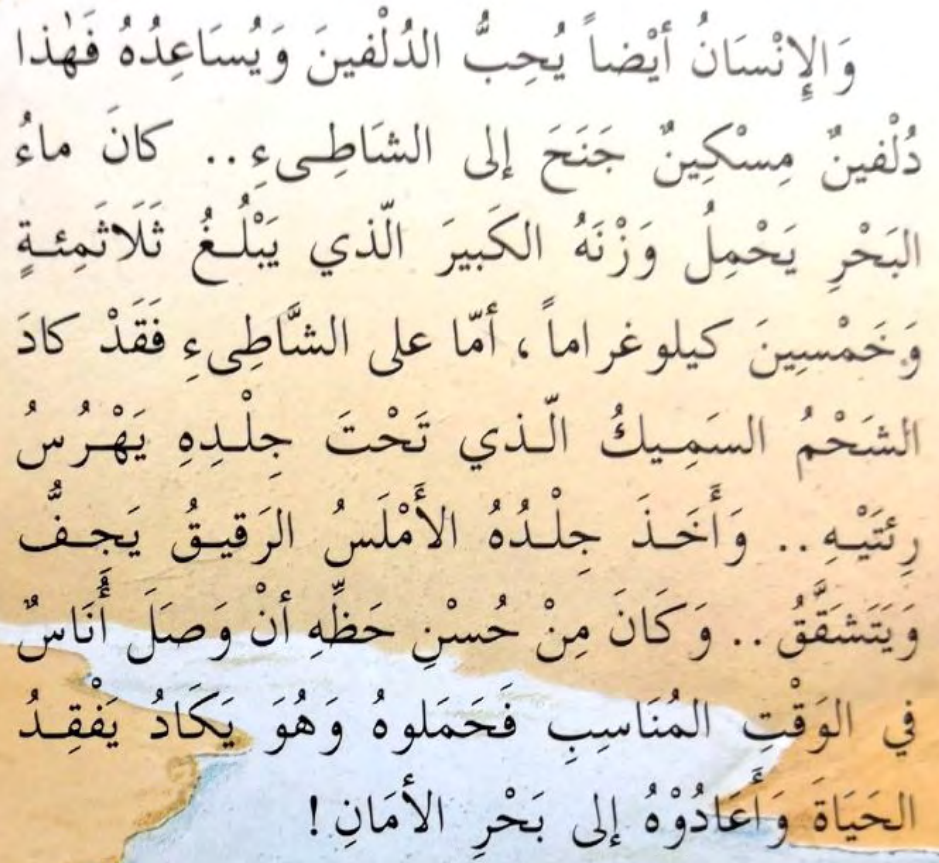 وَالإِنْسَانُ أَيْضاً يُحِبُّ الدُلْفينَ وَيُسَاعِدُهُ فَهٰذا
دُلْفينٌ مِسْكِينٌ جَنَحَ إلى الشَاطِىءِ.. كانَ ماءُ
البَحْرِ يَحْمِلُ وَزْنَهُ الكَبيرَ الّذي يَبْلُغُ ثَلَاثَمِئةٍ
وَخَمْسِينَ كيلوغراماً، أمّا على الشَّاطِىءِ فَقَدْ كادَ
الشَحْمُ السَمِيكُ الّذي تَحْتَ جِلْدِهِ يَهْرُسُ
رِئتَيْهِ.. وَأَخَذَ جِلْدُهُ الأَمْلَسُ الرَقيقُ يَجفُّ
وَيَتَشَقَّقُ.. وَكَانَ مِنْ حُسْنِ حَظِّهِ أنْ وَصَلَ أُنَاسٌ
في الوَقْتِ المُنَاسِبِ فَحَمَلوهُ وَهُوَ يَكَادُ يَفْقِدُ
الحَيَاةَ وَأَعَادُوْهُ إلى بَحْرِ الأمَانِ!